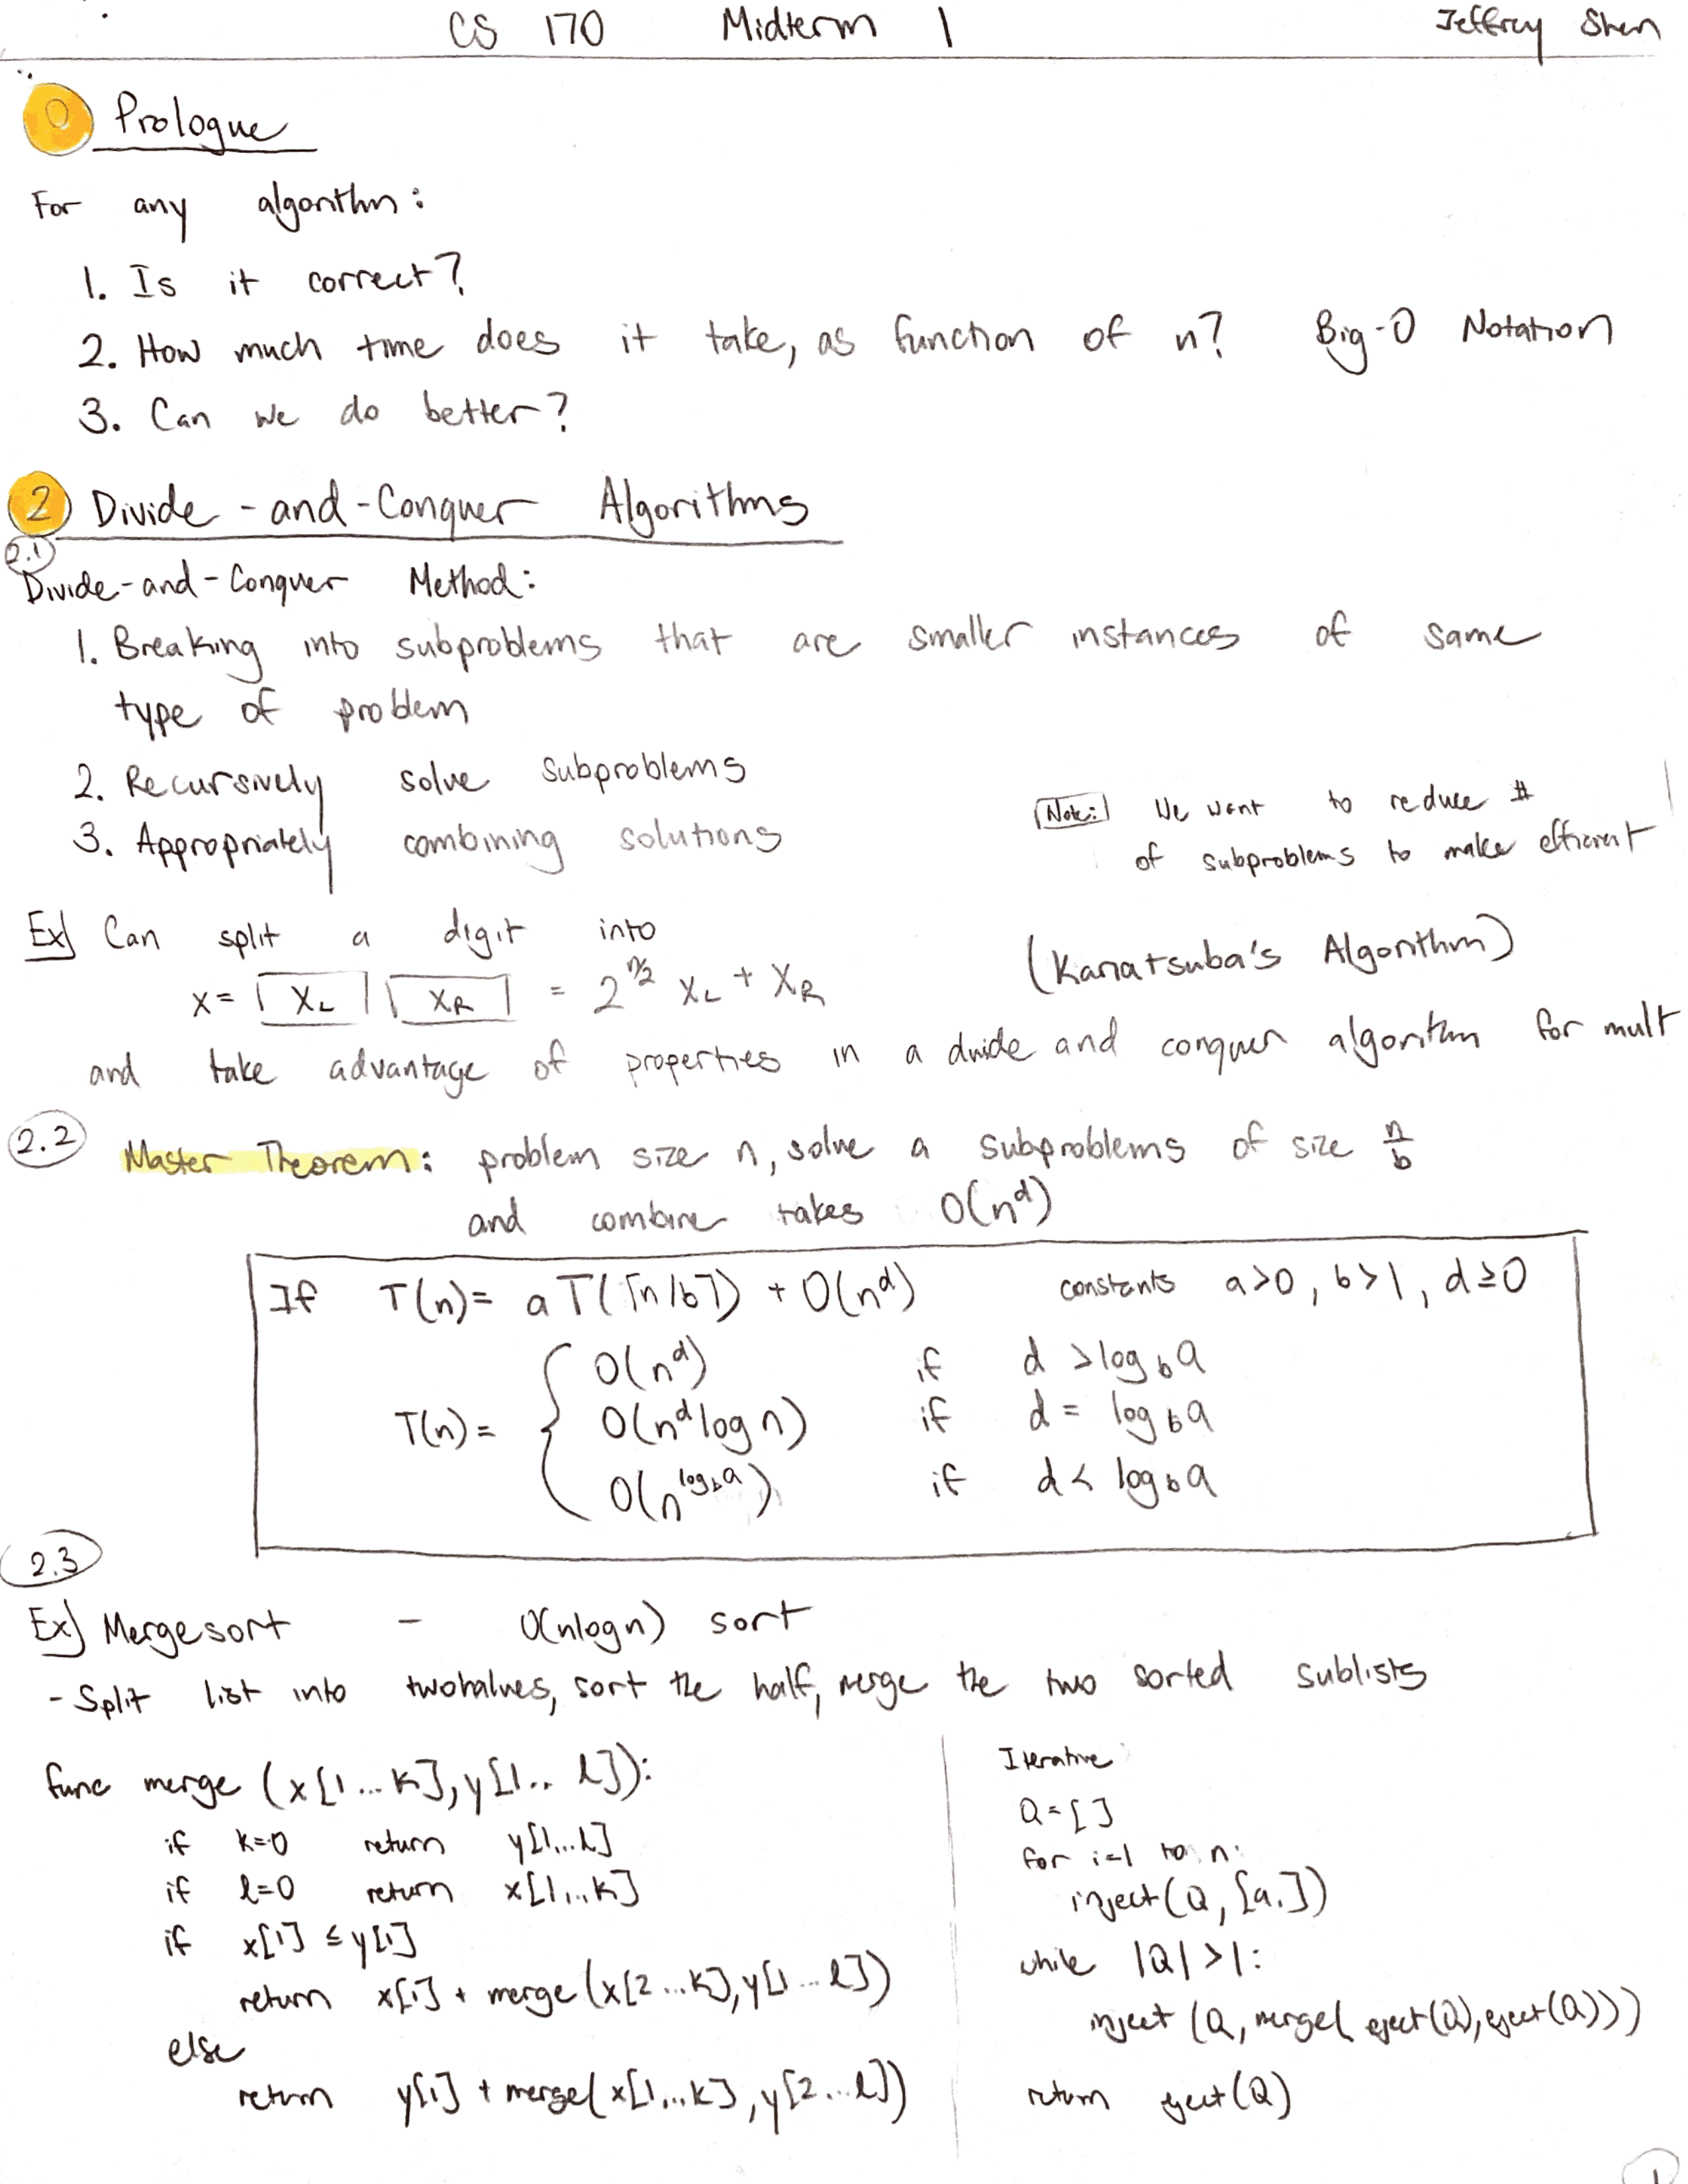 CS 170 Midterm 1 Jeffrey Shen
0 Prologue
For any algorithm:
1. Is it correct?
2. How much time does it take, as function of n? Big-O Notation
3. Can we do better?
2 Divide-and-Conquer Algorithms
2.1
Divide-and-Conquer Method:
1. Breaking into subproblems that are smaller instances of same
type of problem
2. Recursively solve subproblems
3. Appropriately combining solutions
Note: We want to reduce #
of subproblems to make efficient
Ex] Can split a digit into
(Karatsuba's Algorithm)
x = [XL] [XR] = 2^(n/2) XL + XR
and take advantage of properties in a divide and conquer algorithm for mult
2.2 Master Theorem: problem size n, solve a subproblems of size n/b
and combine takes O(n^d)
If T(n) = a T(⌈n/b⌉) + O(n^d) constants a>0, b>1, d≥0
T(n) = { O(n^d) if d > log_b a
O(n^d log n) if d = log_b a
O(n^(log_b a)) if d < log_b a
2.3
Ex] Mergesort - O(nlogn) sort
- Split list into two halves, sort the half, merge the two sorted sublists
func merge (x[1...k], y[1..l]):
if k=0 return y[1...l]
if l=0 return x[1...k]
if x[1] ≤ y[1]
return x[1] + merge(x[2...k], y[1...l])
else
return y[1] + merge(x[1...k], y[2...l])
Iterative
Q = [ ]
for i=1 to n:
inject(Q, [a.])
while |Q| > 1:
inject (Q, merge( eject(Q), eject(Q)))
return eject(Q)
1